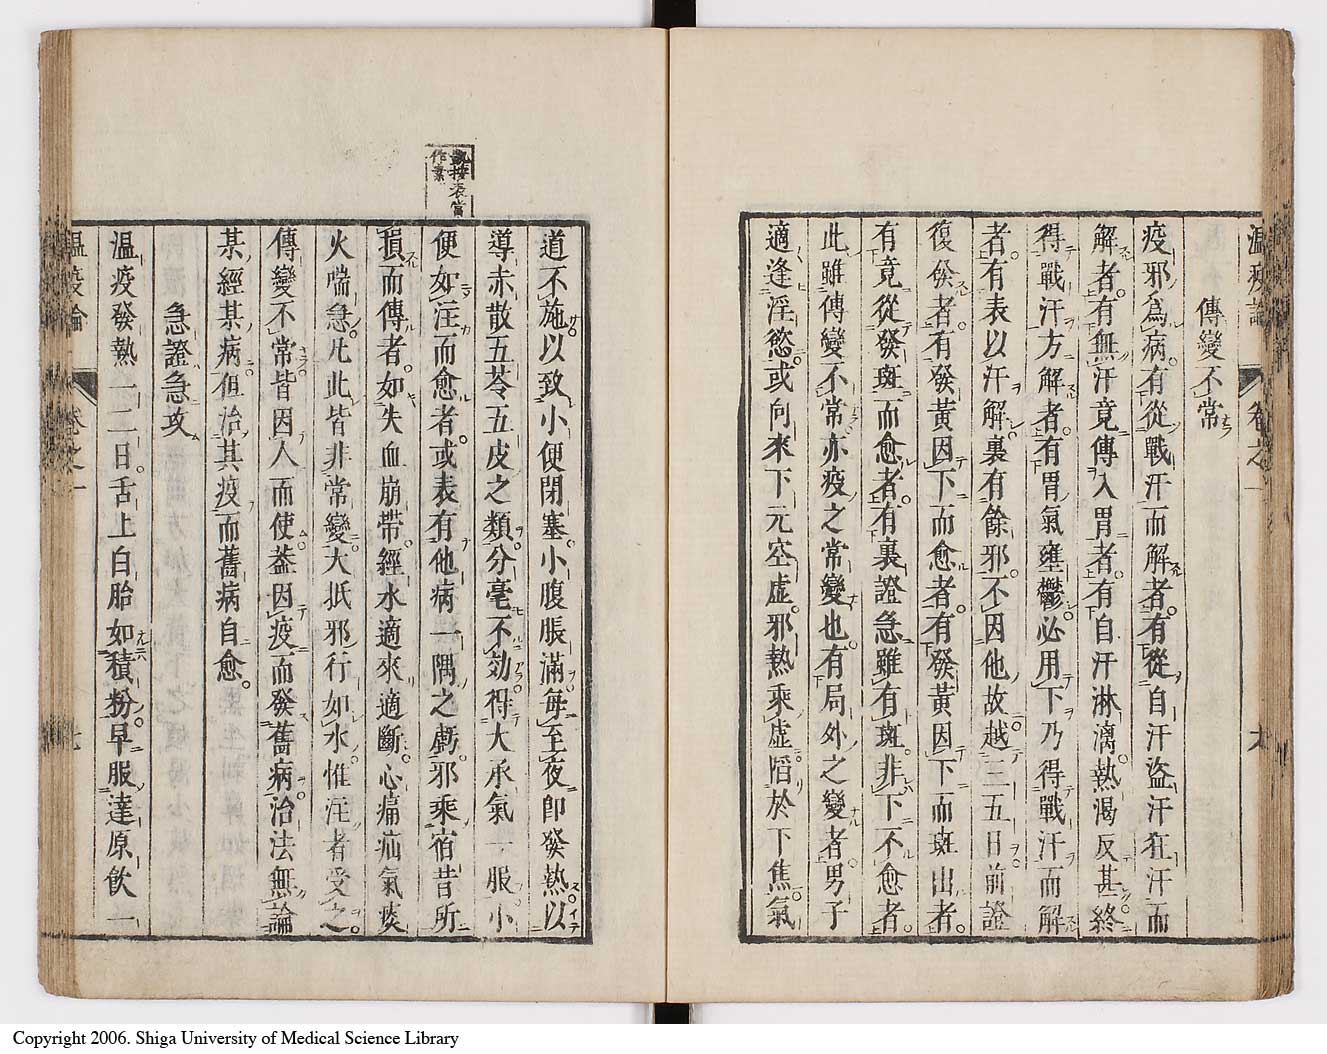 温疫論 卷之一
傳變不常
疫邪爲病有從戰汗而解者有從自汗盜汗狂汗而
解者有無汗竟傳入胃者有自汗淋漓熱渴反甚終
得戰汗方解者有胃氣壅鬱必用下乃得戰汗而解
者有表以汗解裏有餘邪不因他故越三五日前證
復發者有發黃因下而愈者有發黃因下而斑出者
有竟從發斑而愈者有裏證急雖有斑非下不愈者
此雖傳變不常亦疫之常變也有局外之變者男子
適逢淫慾或向來下元空虛邪熱乘虛陷於下焦氣
道不施以致小便閉塞小腹脹滿每至夜即發熱以
導赤散五苓五皮之類分毫不効得大承氣一服小
便如注而愈者或表有他病一隅之虧邪乘宿昔所
損而傳者如失血崩帶經水適來適斷心痛疝氣痰
火喘急凡此皆非常變大抵邪行如水惟注者受之
傳變不常皆因人而使蓋因疫而發舊病治法無論
某經某病但治其疫而舊病自愈
急證急攻
温疫發熱一二日舌上白胎如積粉早服達原飲一
温疫論 卷之一 七
按表當
作素
Copyright 2006. Shiga University of Medical Science Library